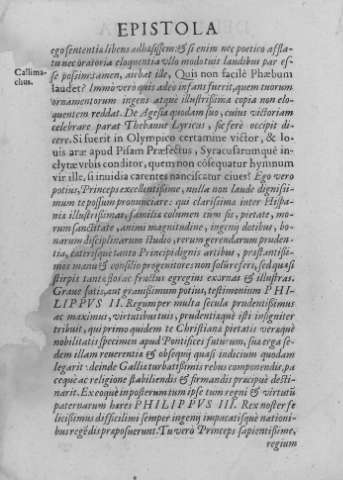 EPISTOLA
ego sententia libens adhæsissem: & si enim nec poetico afflatu
nec oratoria eloquentia vllo modo tuis laudibus par esse
possim: tamen, aiebat ille, Quis non facilè Phæbum
Callimachus.
laudet? Immo vero quis adeo infans fuerit, quem tuorum
ornamentorum ingens atque illustrissima copia non eloquentem
reddat. De Agesia quodam suo, cuius victoriam
celebrare parat Thebanus Lyricus, sic ferè occipit dicere.
Si fuerit in Olympico certamine victor, & Iouis
aræ apud Pisam Præfectus, Syracusarumque inclytæ
vrbis conditor, quem non cōsequatur hymnum
vir ille, si inuidia carentes nanciscatur ciues? Ego vero
potius, Princeps excellentissime, nulla non laude dignissimum
te possum pronunciare: qui clarissima inter Hispania
illustrissimas, familiæ columen cum sis, pietate, morum
sanctitate, animi magnitudine, ingenij dotibus, bonarum
disciplinarum studio, rerum gerendarum prudentia,
cæterisque tanto Principi dignis artibus, præstantissimos
manu & consilio progenitores non solùm refers, sed quasi
stirpis tantæ flos ac fructus egregius exornas & illustras.
Graue satis, aut grauissimum potius, testimonium PHILIPPVS
II. Regum per multa secula prudentissimus
ac maximus, virtutibus tuis, prudentiæque isti insigniter
tribuit, qui primo quidem te Christiana pietatis veræque
nobilitatis specimen apud Pontifices futurum, sua erga sedem
illam reuerentia & obsequij quasi indicium quodam
legarit: deinde Gallia turbatissimis rebus componendis, pace
que ac religione stabiliendis & firmandis præcipuè destinarit.
Ex eo que in posterum tum ipse tum regni & virtutū
paternarum hæres PHILIPPVS III. Rex noster felicissimus
difficilimi semper ingenij impacatisque nationibus
regēdis præposuerunt. Tu vero Princeps sapientissime,
regium